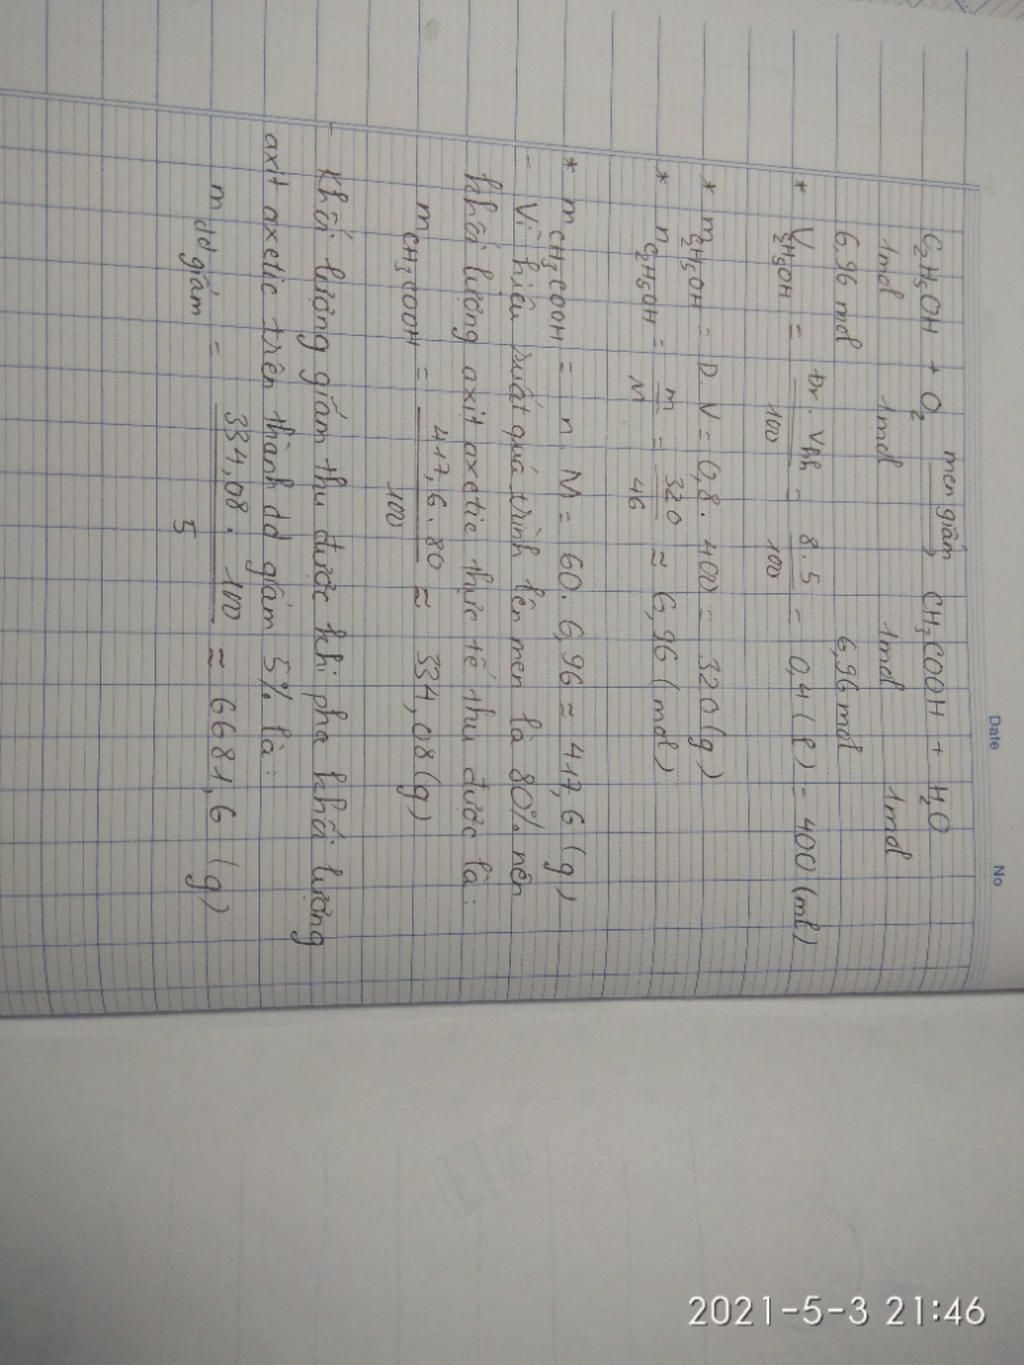 Date No
C2H5OH + O2 men giấm → CH3COOH + H2O
1mol 1mol 1mol 1mol
6,96 mol 6,96 mol
* VC2H5OH = Đr. Vhh / 100 = 8.5 / 100 = 0,4 (l) = 400 (ml)
* mC2H5OH = D.V = 0,8. 400 = 320 (g)
* nC2H5OH = m / M = 320 / 46 ≈ 6,96 (mol)
* mCH3COOH = n. M = 60. 6,96 ≈ 417,6 (g)
- Vì hiệu suất quá trình lên men là 80% nên
khối lượng axit axetic thực tế thu được là:
mCH3COOH = 417,6.80 / 100 ≈ 334,08 (g)
- Khối lượng giấm thu được khi pha khối lượng
axit axetic trên thành dd giấm 5% là:
m dd giấm = 334,08. 100 / 5 ≈ 6681,6 (g)
2021-5-3 21:46